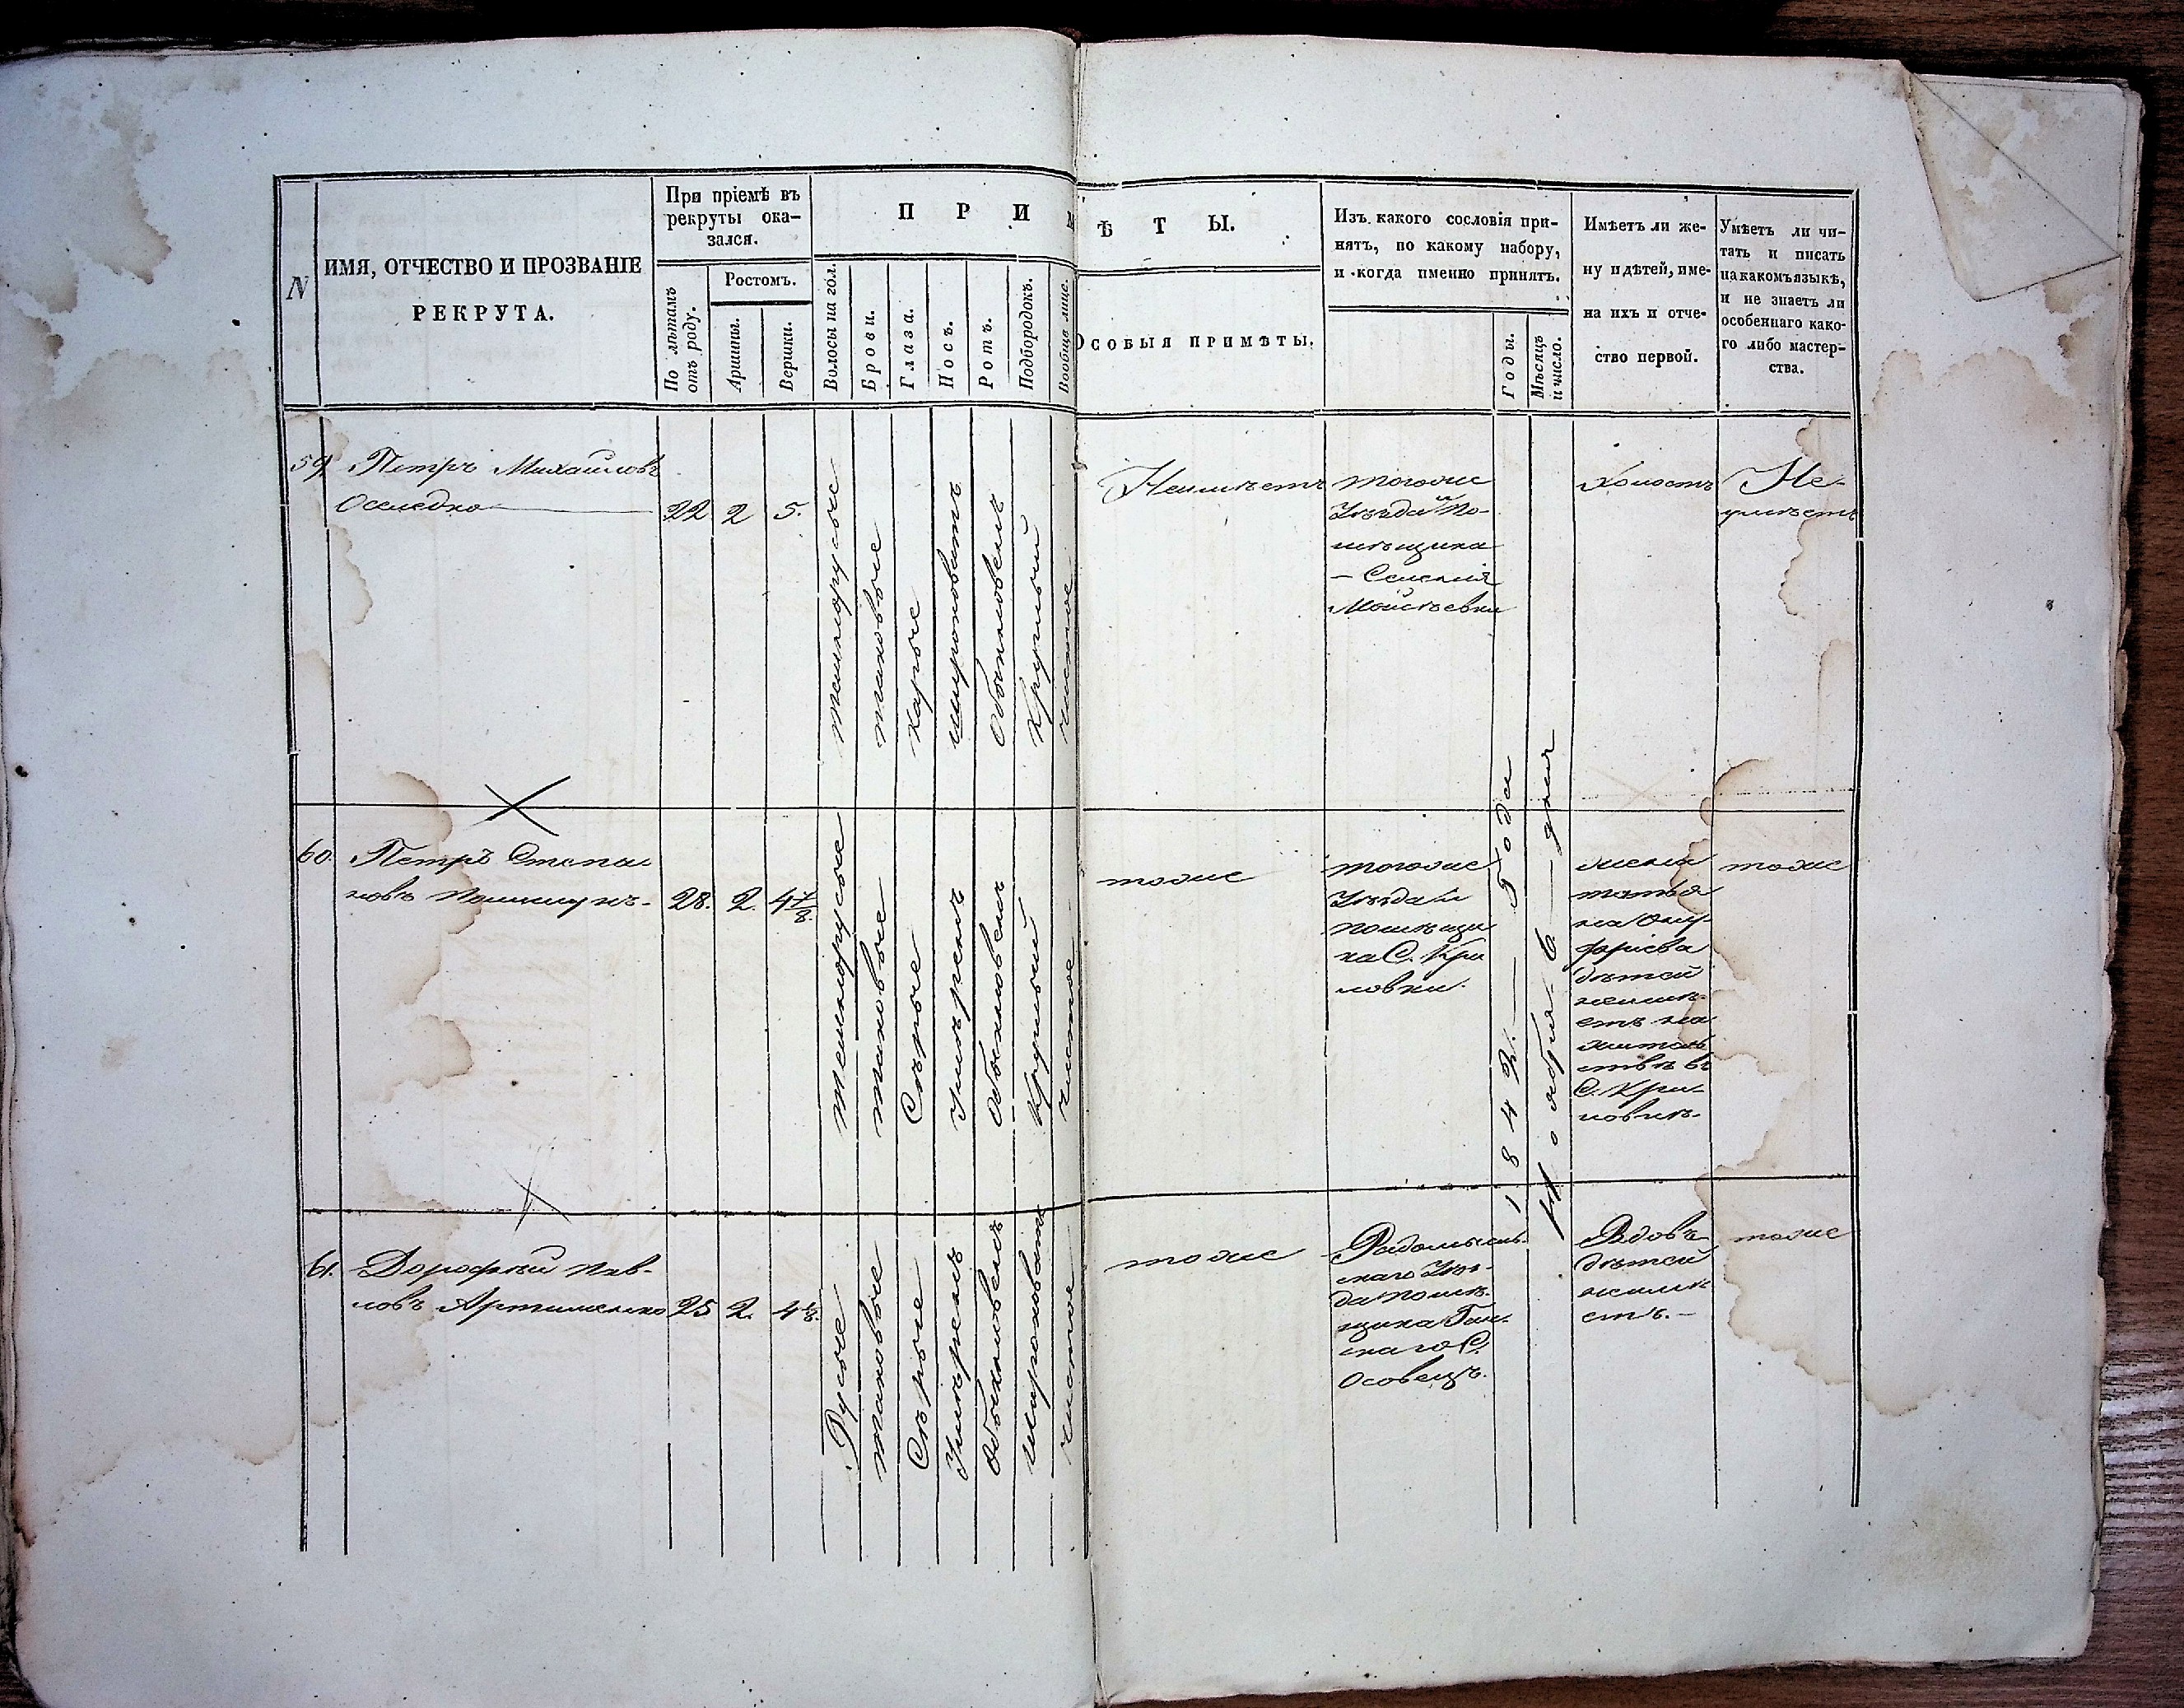 N
ИМЯ, ОТЧЕСТВО И ПРОЗВАНІЕ
РЕКРУТА.
При пріемѣ въ
рекруты ока-
зался.
По лѣтамъ
отъ роду.
Ростомъ.
Аршины.
Вершки.
ПРИМѢТЫ.
Волосы на гол.
Брови.
Глаза.
Носъ.
Ротъ.
Подбородокъ.
Вообще лице.
ОСОБЫЯ ПРИМѢТЫ.
Изъ какого сословія при-
нятъ, по какому набору,
и когда именно принятъ.
Годы.
Мѣсяцъ
и число.
Имѣетъ ли же-
ну и дѣтей, име-
на ихъ и отче-
ство первой.
Умѣетъ ли чи-
тать и писать
на какомъ языкѣ,
и не знаетъ ли
особеннаго како-
го либо мастер-
ства.
59
Петръ Михайловъ
Оселедко
22
2
5.
темнорусые
таковые
карые
широковатъ
обыкновенъ
круглый
чистое
Неимѣетъ
тогоже
Уѣзда По-
мѣщика
Холостъ
Не-
умѣетъ
60.
Петръ Степа-
новъ
28.
2.
4 7/8.
темнорусые
таковые
Сѣрые
Умѣренъ
обыкновенъ
круглый
чистое
тоже
тогоже
Уѣзда
помѣщи
ка С. Кри
ловки.
1842. Года
Ноября 6 дня
жена
татья
на Ону-
фріева
дѣтей
неимѣ-
етъ на
житель
ствѣ въ
С. Кри-
ловкѣ.
тоже
61.
Дорофѣй Пав-
ловъ Артименко
25
2.
Русые
таковые
Сѣрые
Умѣренъ
обыкновенъ
широковатъ
чистое
тоже
Радомысль-
скаго Уѣз-
да помѣ-
щика Ган-
скаго С.
Осовецъ.
Вдовъ
дѣтей
неимѣ
етъ.-
тоже